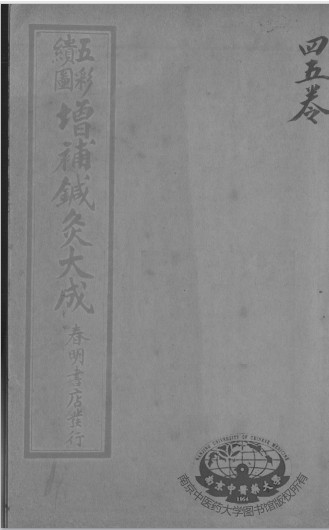 四五卷
五彩
繢圖
增補鍼灸大成
秦明書店發行
NANJING UNIVERSITY OF CHINESE MEDICINE
南京中醫藥大學
1954
南京中医药大学图书馆版权所有